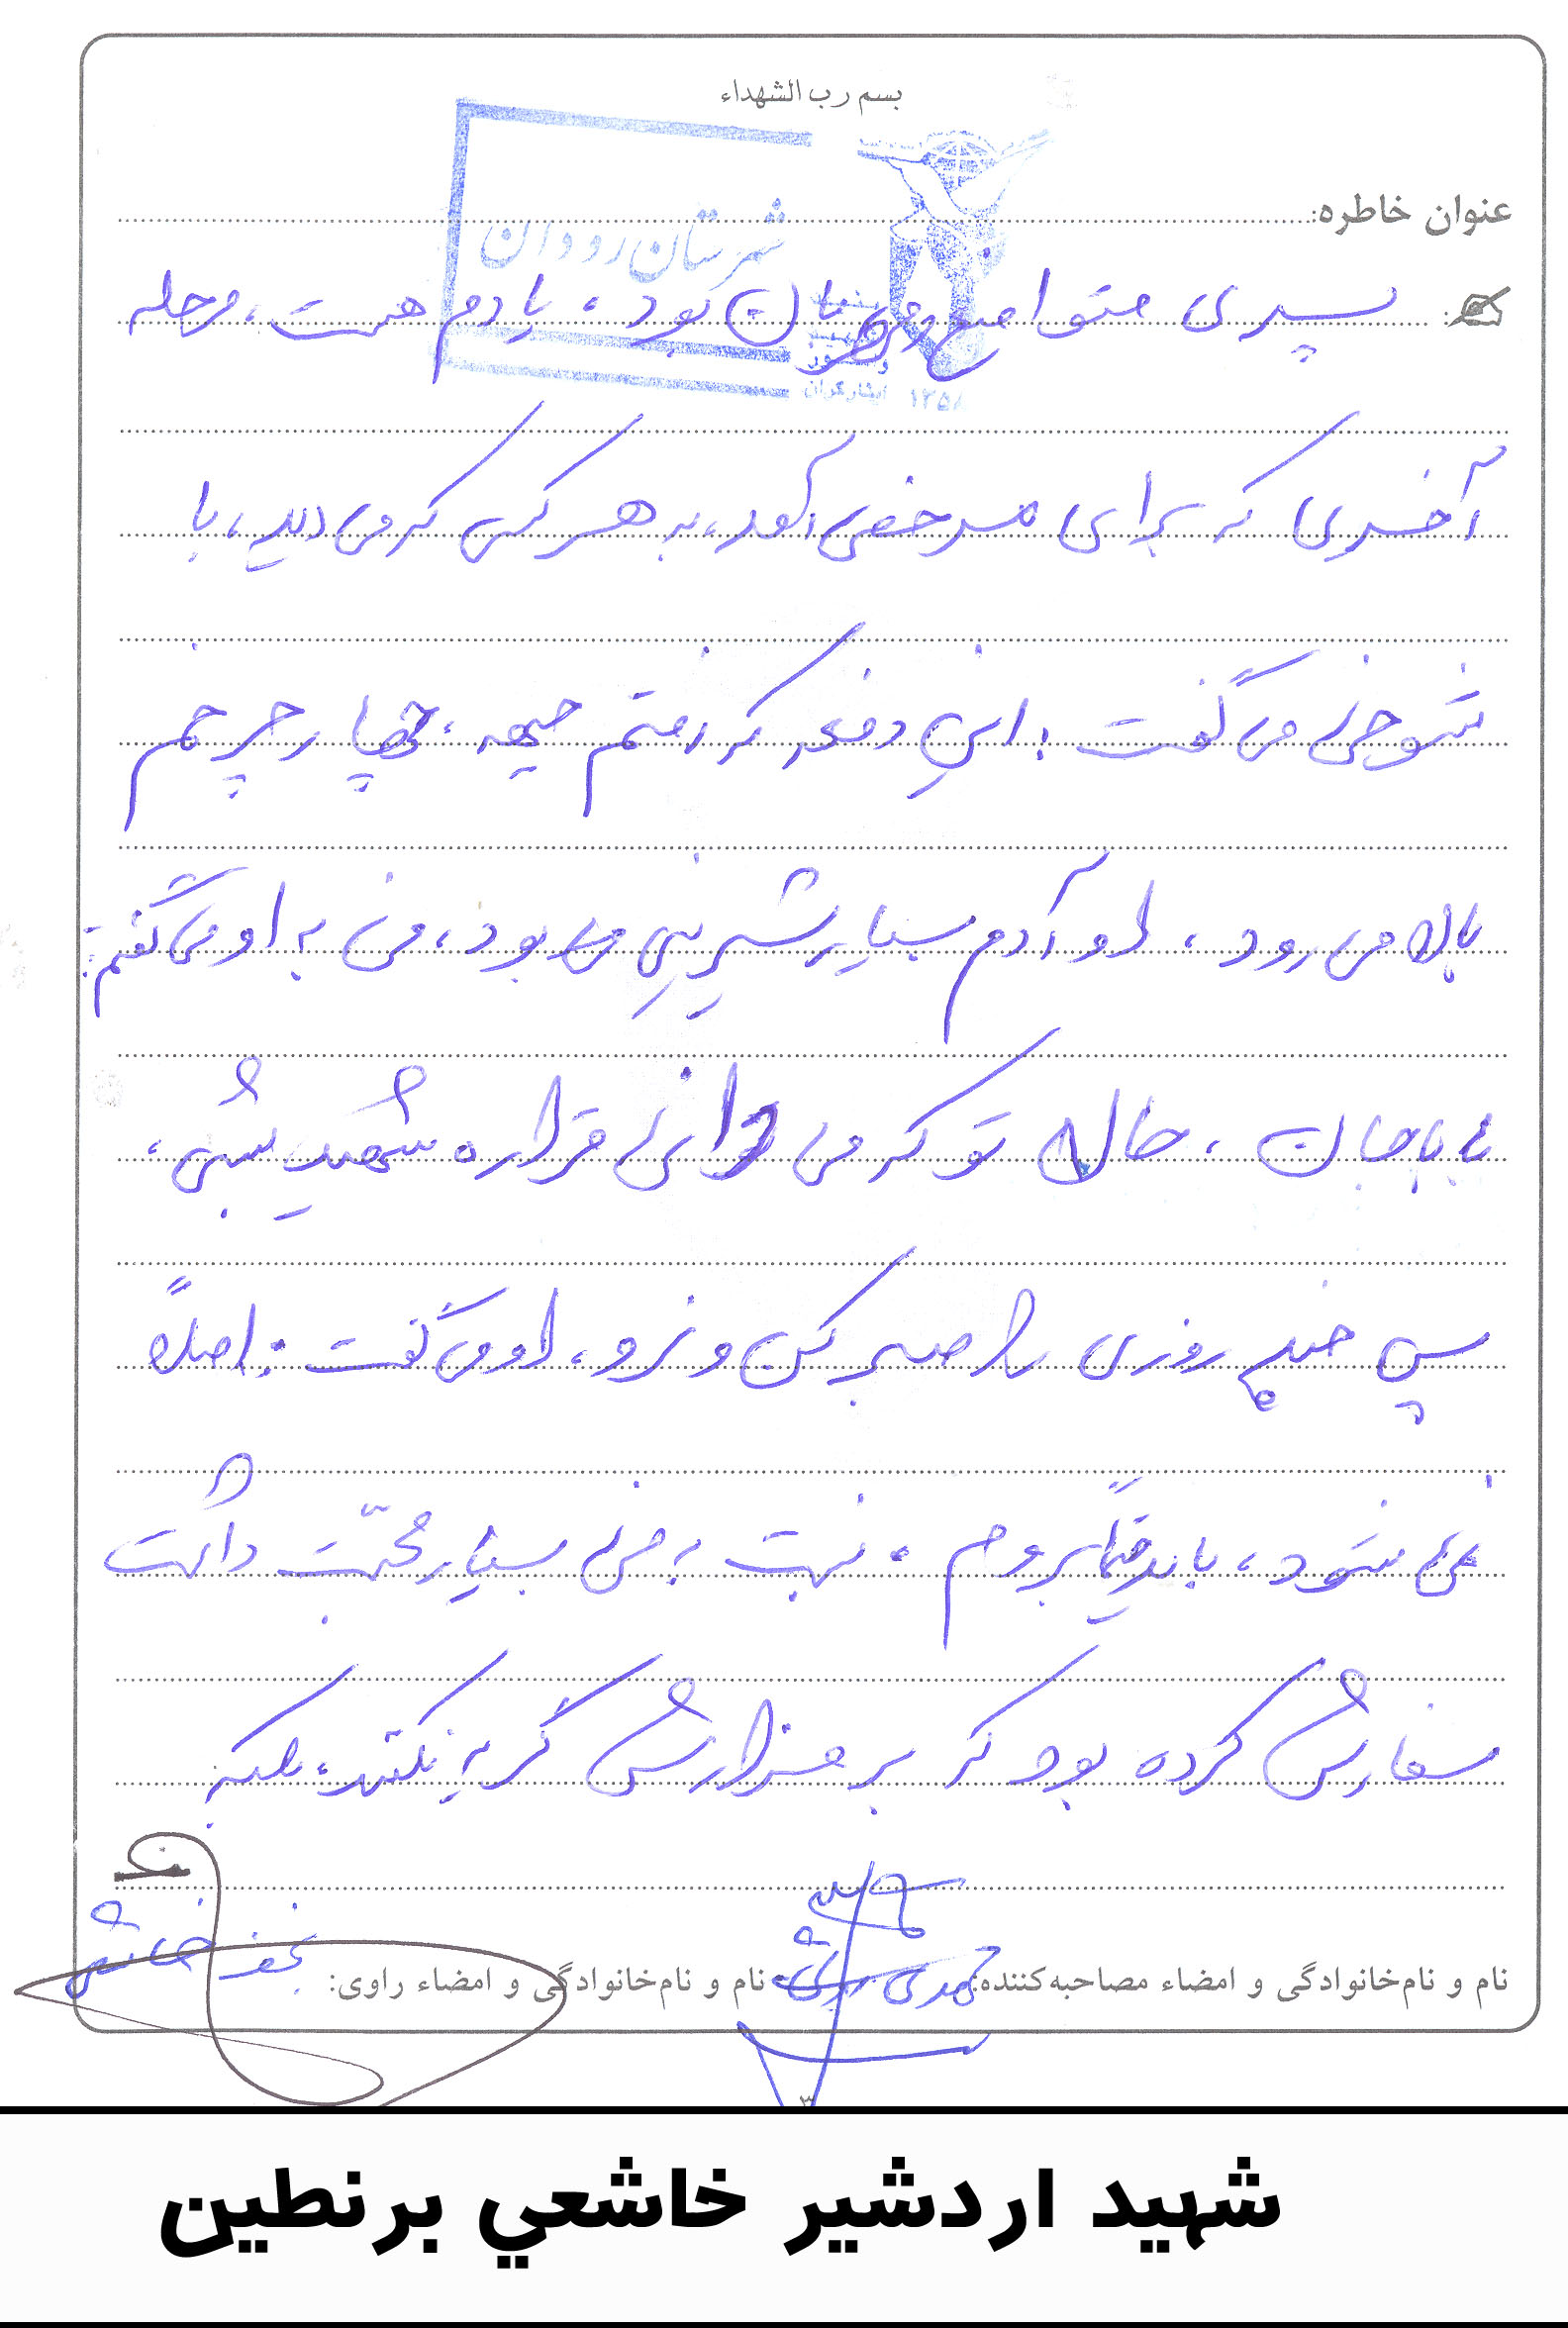 بسم رب الشهداء
شهرستان رودان
عنوان خاطره:
پسری متواضع و مهربان بود، یادم هست، مرحله
ایثارگران ۱۳۵۸
آخری که برای مرخصی آمد، به هر کسی که می دید، با
شوخی می گفت: این دفعه که رفتم جبهه، چهار چرخم
بالا می رود، او آدم بسیار شیرینی بود، من به او می گفتم:
بابا جان، حالا تو که می دانی قراره شهید بشی،
پس چند روزی را صبر کن و نرو، او می گفت: اصلاً
نمی شود، باید حتماً بروم، نسبت به من بسیار محبّت داشت
سفارش کرده بود که بر مزارش گریه نکنند، بلکه
نام و نام‌خانوادگی و امضاء مصاحبه‌کننده:
نام و نام‌خانوادگی و امضاء راوی: نجف خاشعی
۳
شهيد اردشير خاشعي برنطين